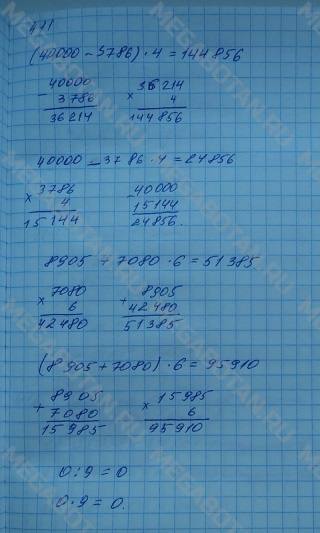 471
(40000 - 3786) · 4 = 144856
- 40000
3786
36214
× 36214
4
144856
40000 - 3786 · 4 = 24856
× 3786
4
15144
- 40000
15144
24856.
8905 + 7080 · 6 = 51385
× 7080
6
42480
+ 8905
42480
51385
(8905 + 7080) · 6 = 95910
+ 8905
7080
15985
× 15985
6
95910
0 : 9 = 0
0 · 9 = 0.
MEGABOTAN.RU